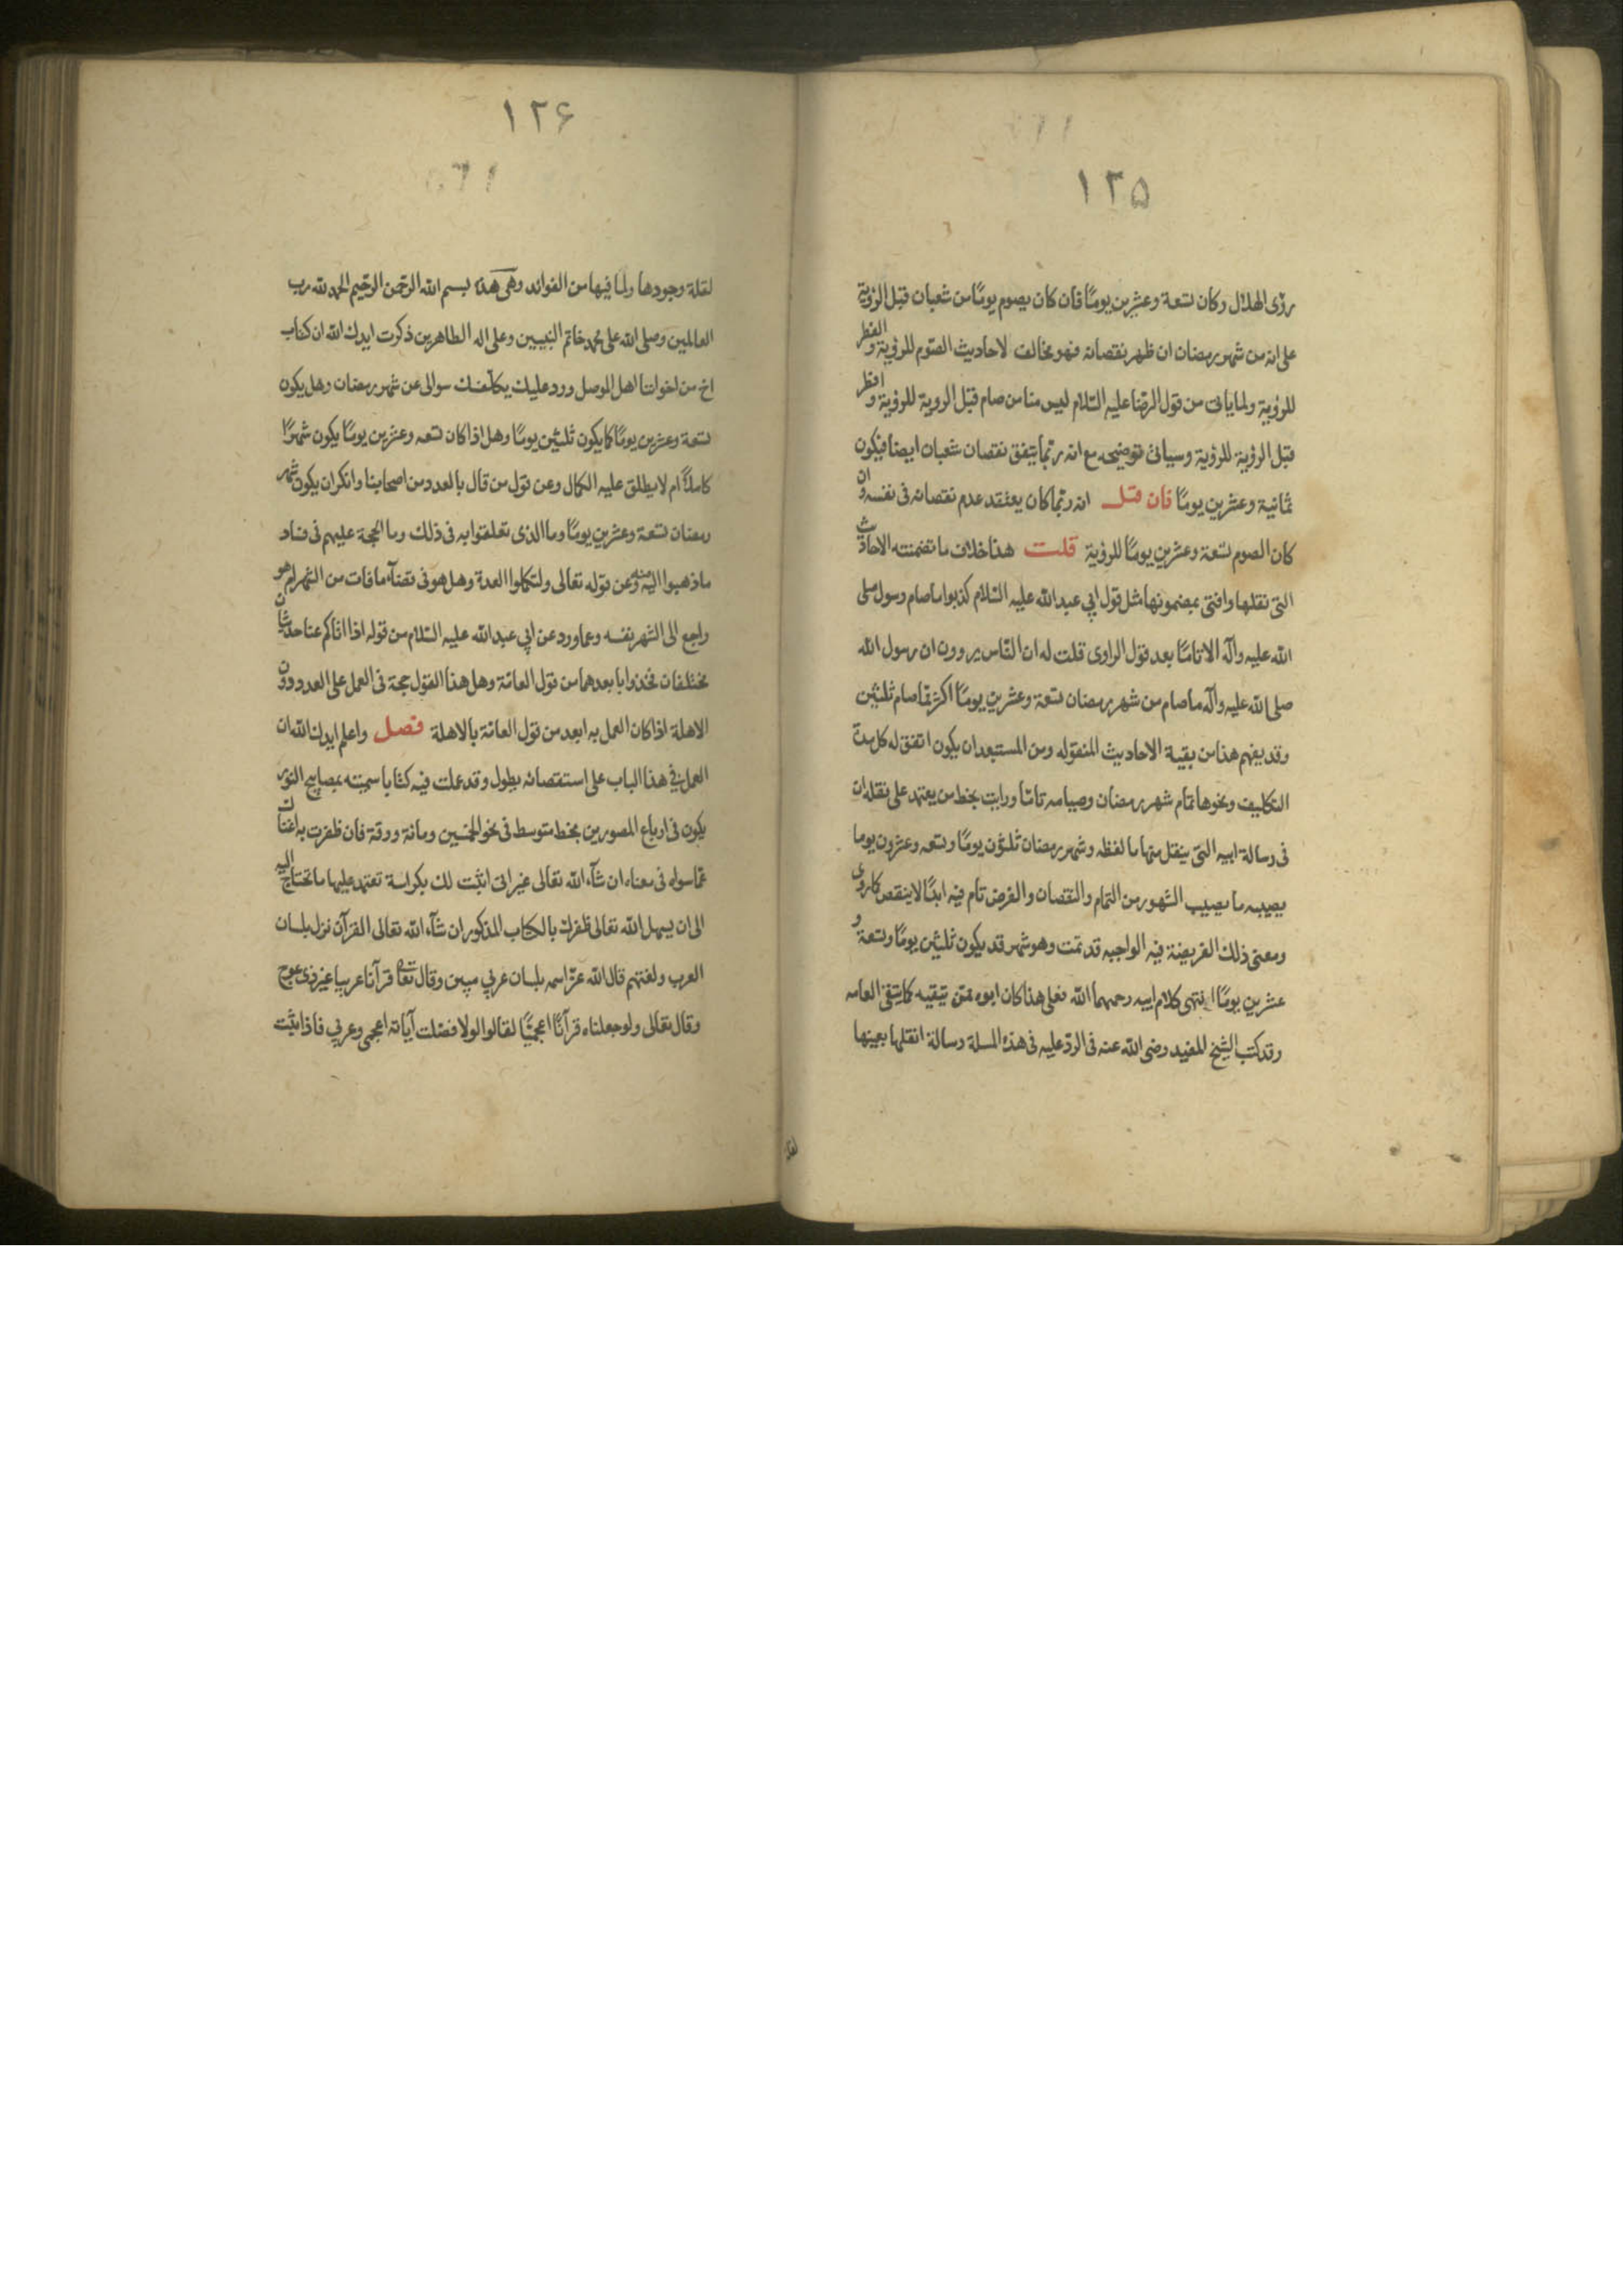 ١٢٥
رؤى الهلال وكان تسعة وعشرين يومًا فان كان يصوم يومًا من شعبان قبل الرؤية
على انه من شهر رمضان ان ظهر نقصانه فهو مخالف لاحاديث الصّوم للرؤية والفطر
للرؤية ولما ياتى من قول الرضا عليه السّلام ليس منا من صام قبل الروية للرؤية وافطر
قبل الرؤية للرؤية وسياتى توضيحه مع انه ربّما يتفق نقصان شعبان ايضا فيكون
ثمانية وعشرين يومًا فان قيل انه ربّما كان يعتقد عدم نقصانه فى نفسه وان
كان الصوم تسعة وعشرين يومًا للرؤية قلت هذا خلاف ما تضمنته الاحاديث
التى نقلها وافتى بمضمونها مثل قول ابي عبد الله عليه السّلام كذبوا ما صام رسول صلى
الله عليه وآله الا تامًا بعد قول الراوى قلت له ان النّاس يروون ان رسول الله
صلى الله عليه وآله ما صام من شهر رمضان تسعة وعشرين يومًا اكثر مما صام ثلثين
وقد يفهم هذا من بقية الاحاديث المنقوله ومن المستبعد ان يكون اتفق له كل مدة
التكليف ونحوها تمام شهر رمضان وصيامه تامّا ورايت بخط من يعتمد على نقله ان
فى رسالة ابيه التى ينقل منها ما لفظه وشهر رمضان ثلثون يومًا وتسعه وعشرون يوما
يصيبه ما يصيب الشهور من التمام والنقصان والفرض تام فيه ابدًا لا ينقص كما روى
ومعنى ذلك الفريضة فيه الواجبه قد تمت وهو شهر قد يكون ثلثين يومًا وتسعة و
عشرين يومًا انتهى كلام ابيه رحمهما الله فعلى هذا كان ابوه ممّن يتقيه كما يتقى العامه
وقد كتب الشيخ المفيد رضى الله عنه فى الردّ عليه فى هذه المسلة رسالة انقلها بعينها
لقلة
١٢۶
لقلة وجودها ولما فيها من الفوائد وهى هذه بسم الله الرحمن الرحيم الحمد لله رب
العالمين وصلى الله على محمد خاتم النبيين وعلى اله الطاهرين ذكرت ايدك الله ان كتاب
اخ من اخواننا اهل الموصل ورد عليك يكلفك سوالى عن شهر رمضان وهل يكون
تسعة وعشرين يومًا كما يكون ثلثين يومًا وهل اذا كان تسعه وعشرين يومًا يكون شهرًا
كاملاً ام لا يطلق عليه الكمال وعن قول من قال بالعدد من اصحابنا وانكر ان يكون شهر
رمضان تسعة وعشرين يومًا وما الذى تعلقوا به فى ذلك وما الحجة عليهم فى فساد
ما ذهبوا اليه منه وعن قوله تعالى ولتكملوا العدة وهل هو فى قضآء ما فات من الشهر ام هو
راجع الى الشهر نفسه وعما ورد عن ابي عبد الله عليه السّلام من قوله اذا اتاكم عنا حديثان
مختلفان فخذوا بابعدهما من قول العامّة وهل هذا القول حجة فى العمل على العدد دون
الاهلة اذا كان العمل به ابعد من قول العامّة بالاهلة فصل واعلم ايدك الله ان
العمل في هذا الباب على استقصائه يطول وقد عملت فيه كتابا سميته بمصابيح النور
يكون فى ارباع المصورين بخط متوسط فى نحو الخمسين ومائة ورقة فان ظفرت به اغناك
عمّا سواه فى معناه ان شآء الله تعالى غير انى اثبت لك بكراسة تعتمد عليها ما تحتاج اليه
الى ان يسهل الله تعالى ظفرك بالكتاب المذكور ان شآء الله تعالى القرآن نزل بلسان
العرب ولغتهم قال الله عزّ اسمه بلسان عربي مبين وقال تعالى قرآنا عربيا غير ذى عوج
وقال تعالى ولو جعلناه قرآنًا اعجميًّا لقالوا لولا فصّلت آياته اعجمى وعربي فاذا ثبت